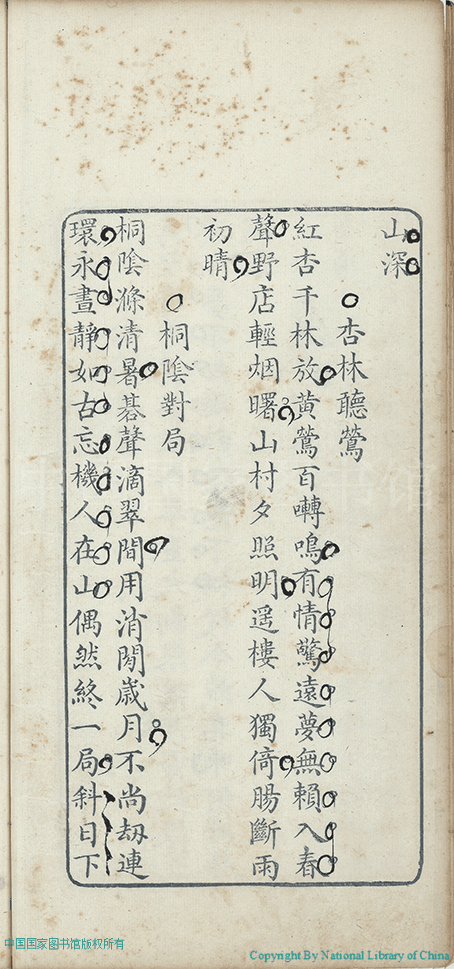 山深
杏林聽鶯
紅杏千林放黃鶯百囀鳴有情驚遠夢無賴入春
聲野店輕烟曙山村夕照明遥樓人獨倚腸斷雨
初晴
桐陰對局
桐陰滌清暑碁聲滴翠間用消閒歲月不尚刼連
環永晝靜如古忘機人在山偶然終一局斜日下
中国国家图书馆版权所有
Copyright By National Library of China